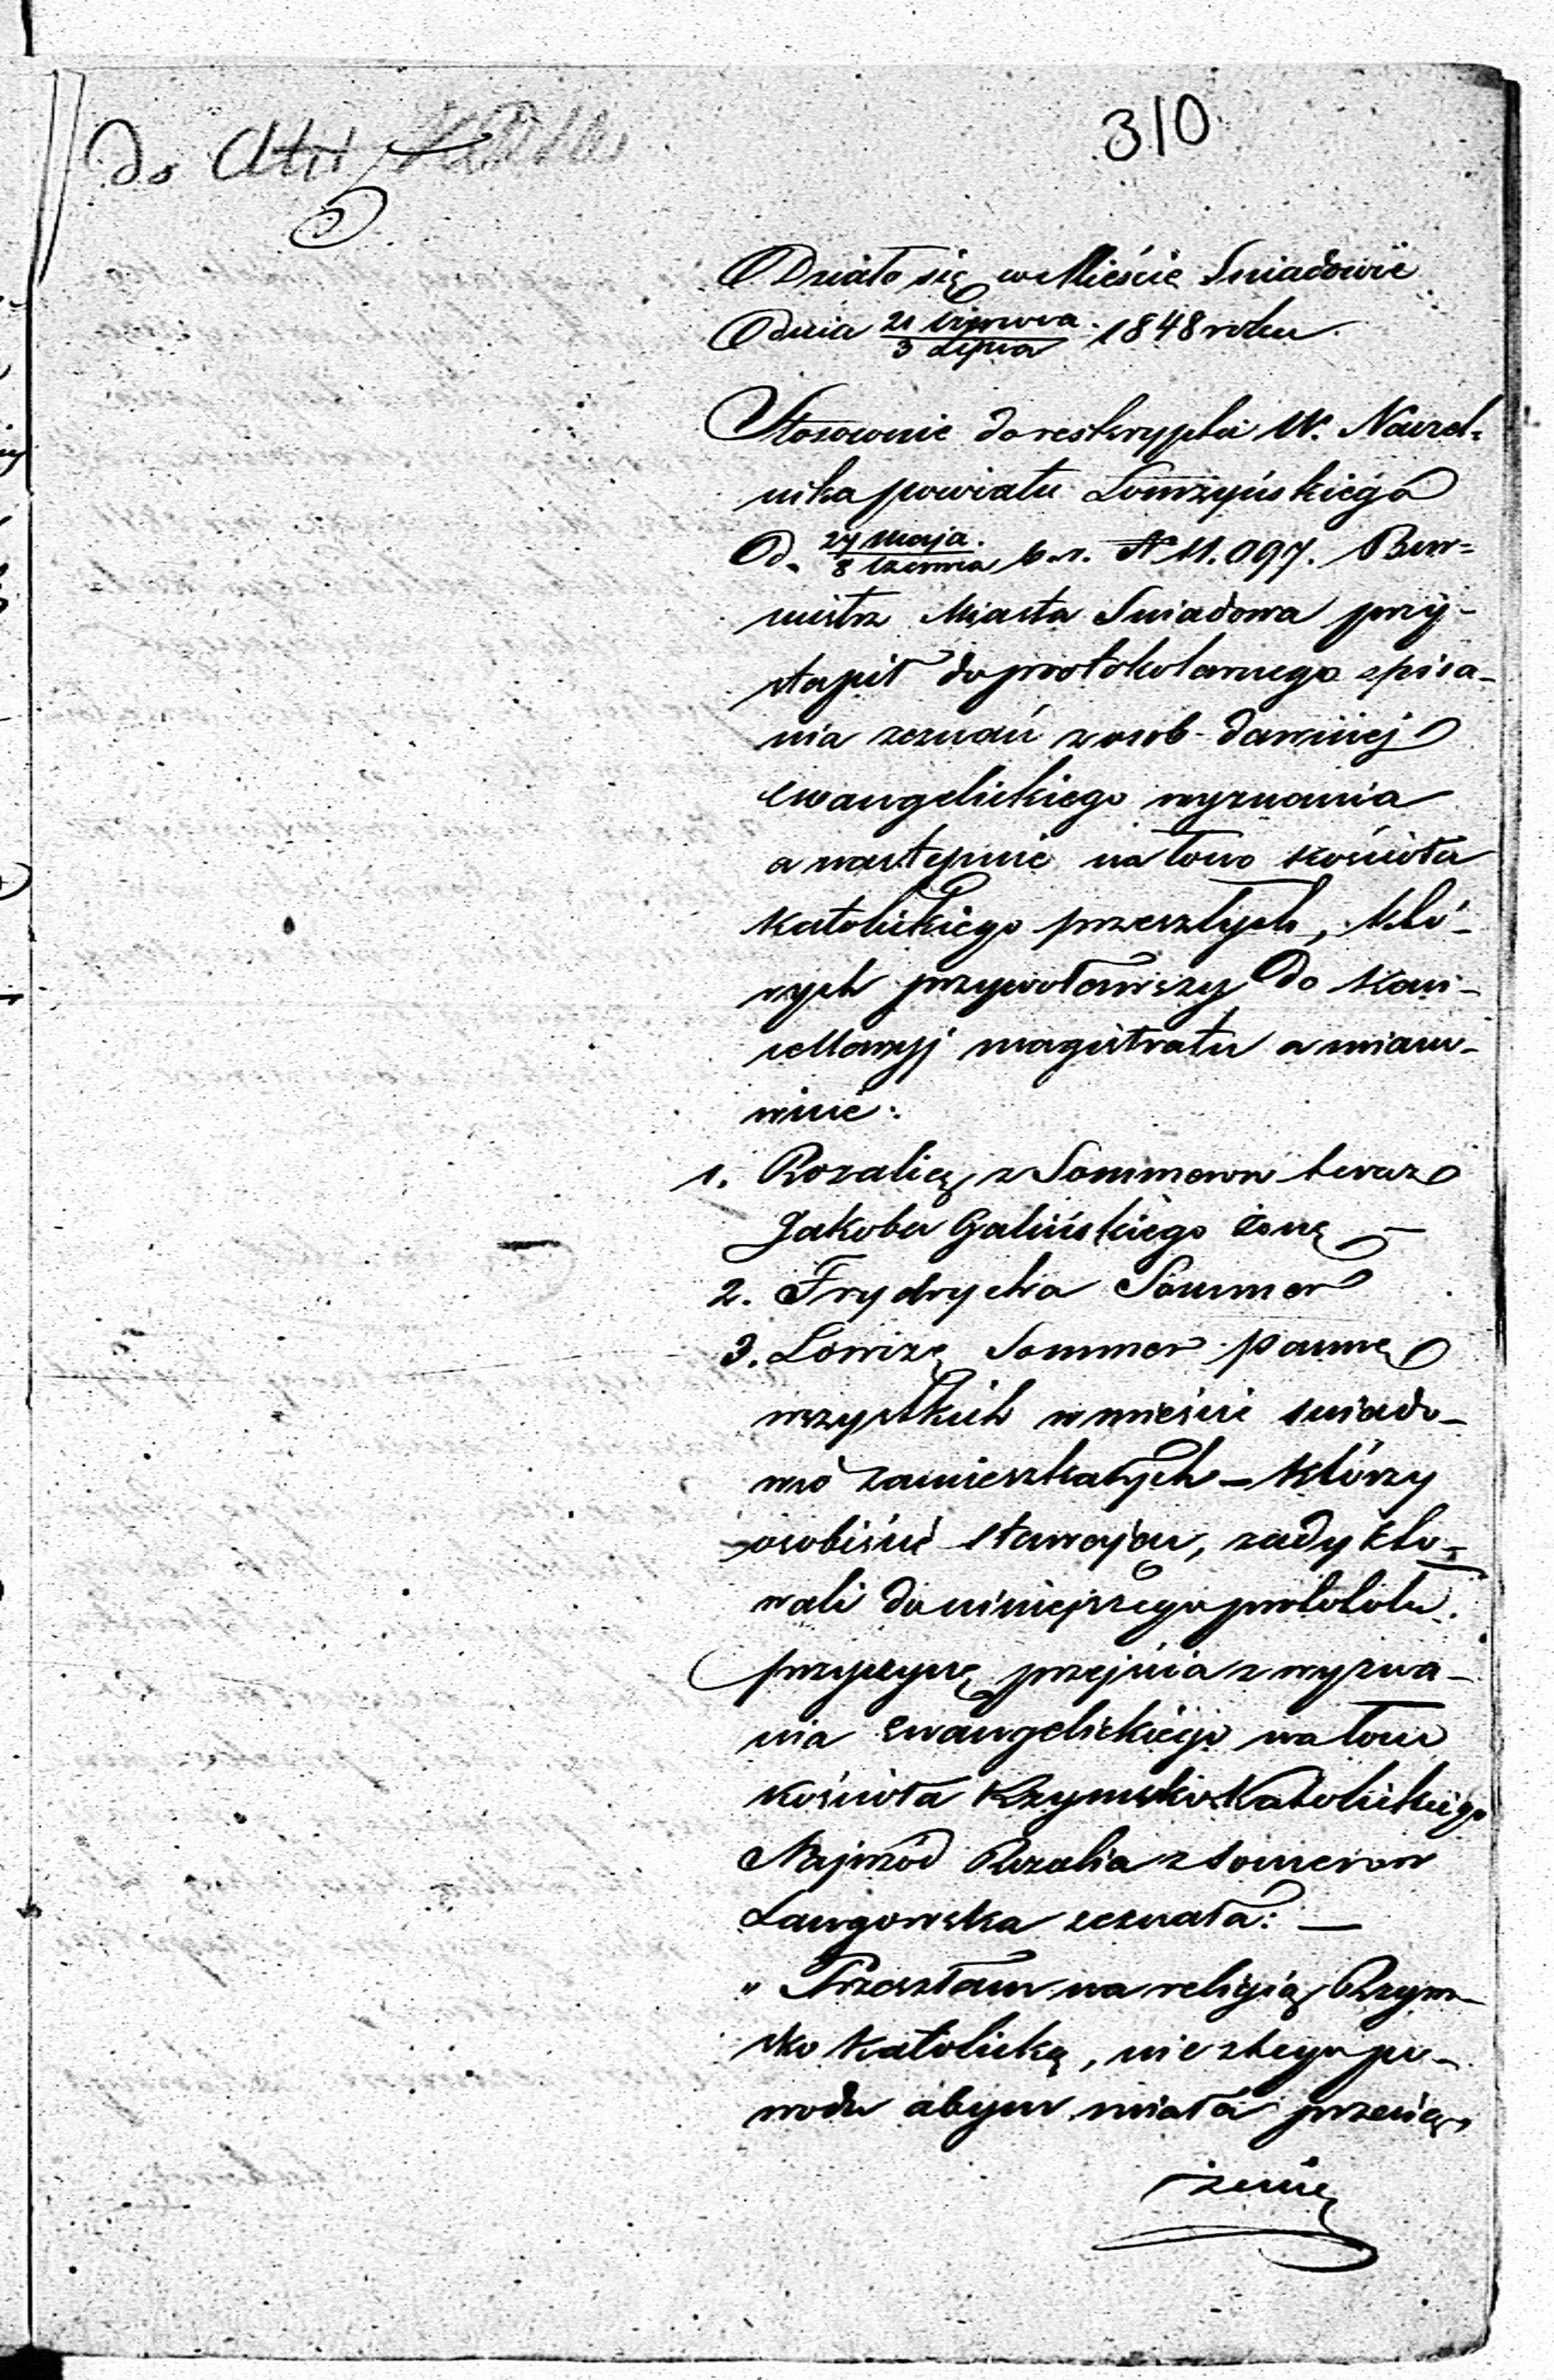 310
Do Akt
Działo się w Mieście Sniadowie
Dnia 21 Czerwca / 3 Lipca 1848 roku
Stosownie do reskryptu W. Naczel=
nika powiatu Łomżyńskiego
D. 27 Maja / 8 Czerwca b.r. № 11.097. Bur=
mistrz Miasta Sniadowa przy-
stąpił do protokolarnego spisa-
nia zeznań z osob dawniej
ewangelickiego wyznania
a następnie na łono kościoła
katolickiego przeszłych, któ-
rych przywoławszy do kan-
cellaryj magistratu a miano-
wicie:
1. Rozalię z Sommerow teraz
Jakoba Galińskiego żonę —
2. Frydrycha Sommer
3. Lowizę Sommer pannę
wszystkich w mieście Sniado-
wie zamieszkałych – którzy
osobiście stawając, zadykto-
wali do niniejszego protokołu
przyczynę przejścia z wyzna-
nia ewangelickiego na łono
kościoła Rzymsko Katolickiego
Najprzód Rozalia z Somerow
zeznała: —
„ Przeszłam na religią Rzym-
sko katolicką, nie z tego po-
wodu abym miała przeciąż
żenie